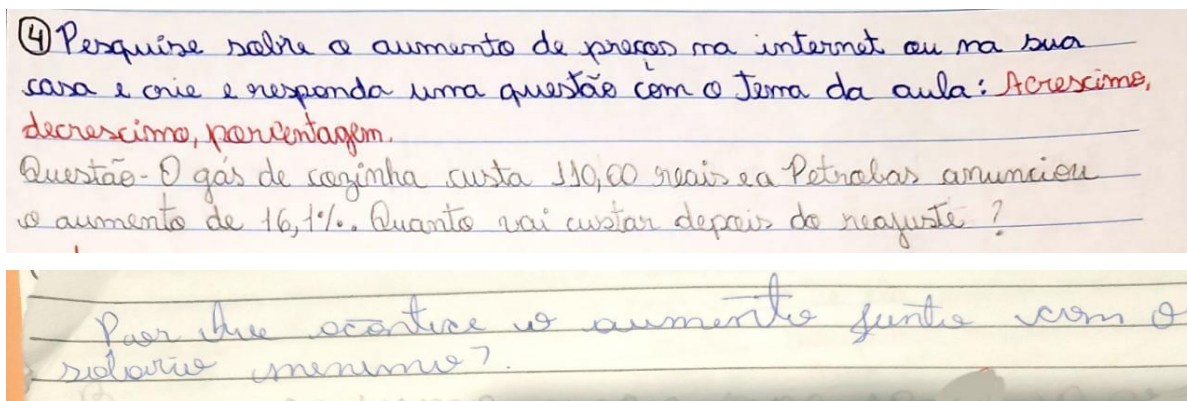 ④ Pesquise sobre o aumento de preços na internet ou na sua
casa e crie e responda uma questão com o Tema da aula: Acrescimo,
decrescimo, porcentagem.
Questão - O gás de cozinha custa 110,00 reais e a Petrobas anunciou
o aumento de 16,1%. Quanto vai custar depois do reajuste?
Puor que acontece o aumento junto com o
salario menimo?